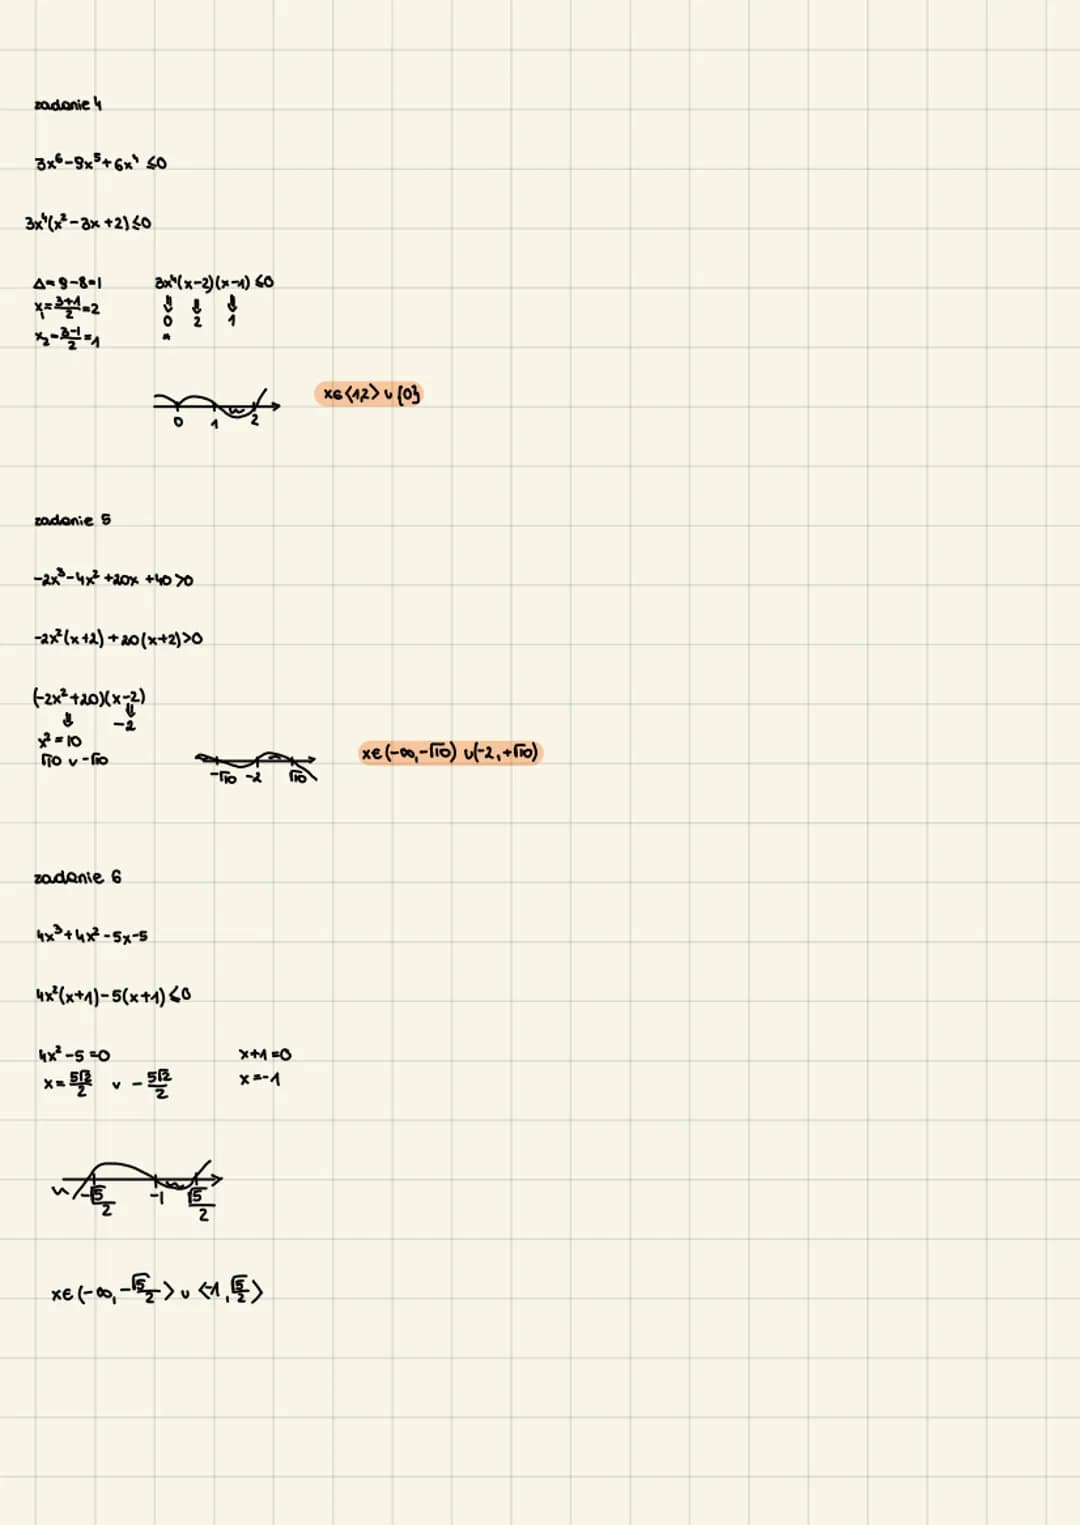 zadanie 4
3x⁶-9x⁵+6x⁴ ≤0
3x⁴(x²-3x+2)≤0
Δ=9-8=1 3x⁴(x-2)(x-1) ≤0
x₁=3+1/2=2 ⇓ ⇓ ⇓
0 2 1
x₂=3-1/2=1 *
0 1 2
x∈<1,2> ∪ {0}
zadanie 5
-2x³-4x²+20x+40>0
-2x²(x+2)+20(x+2)>0
(-2x²+20)(x-2)
⇓ ⇓
-2
x²=10
√10 ∨ -√10
-√10 -2 √10
x∈(-∞,-√10) ∪(-2,+√10)
zadanie 6
4x³+4x²-5x-5
4x²(x+1)-5(x+1)≤0
4x²-5=0 x+1=0
x=5√2/2 ∨ -5√2/2 x=-1
-√5/2 -1 √5/2
x∈(-∞,-√5/2> ∪ <-1,√5/2>